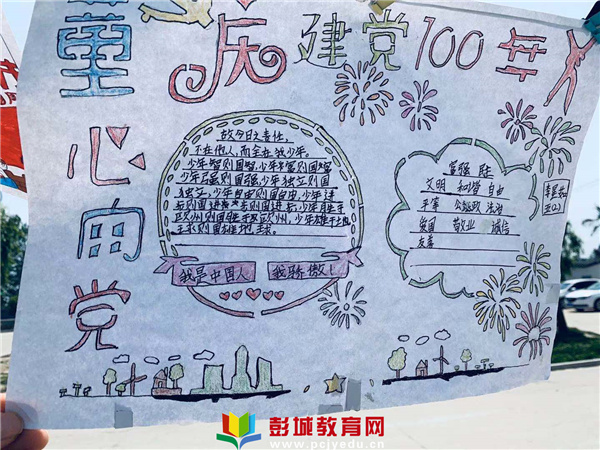 童心向党
庆建党100年
故今日之责任,
不在他人,而全在我少年。
少年智则国智,少年富则国
少年强则国强,少年独立则国
独立,少年自由则国自由,少年进
步则国进步
欧洲则国胜于欧洲,少年雄于地
球则国雄地球.
我是中国人 我骄傲!
富强
文明 自由
平等 法治
爱国 敬业 诚信
友善
彭城教育网
www.pcjyedu.cn